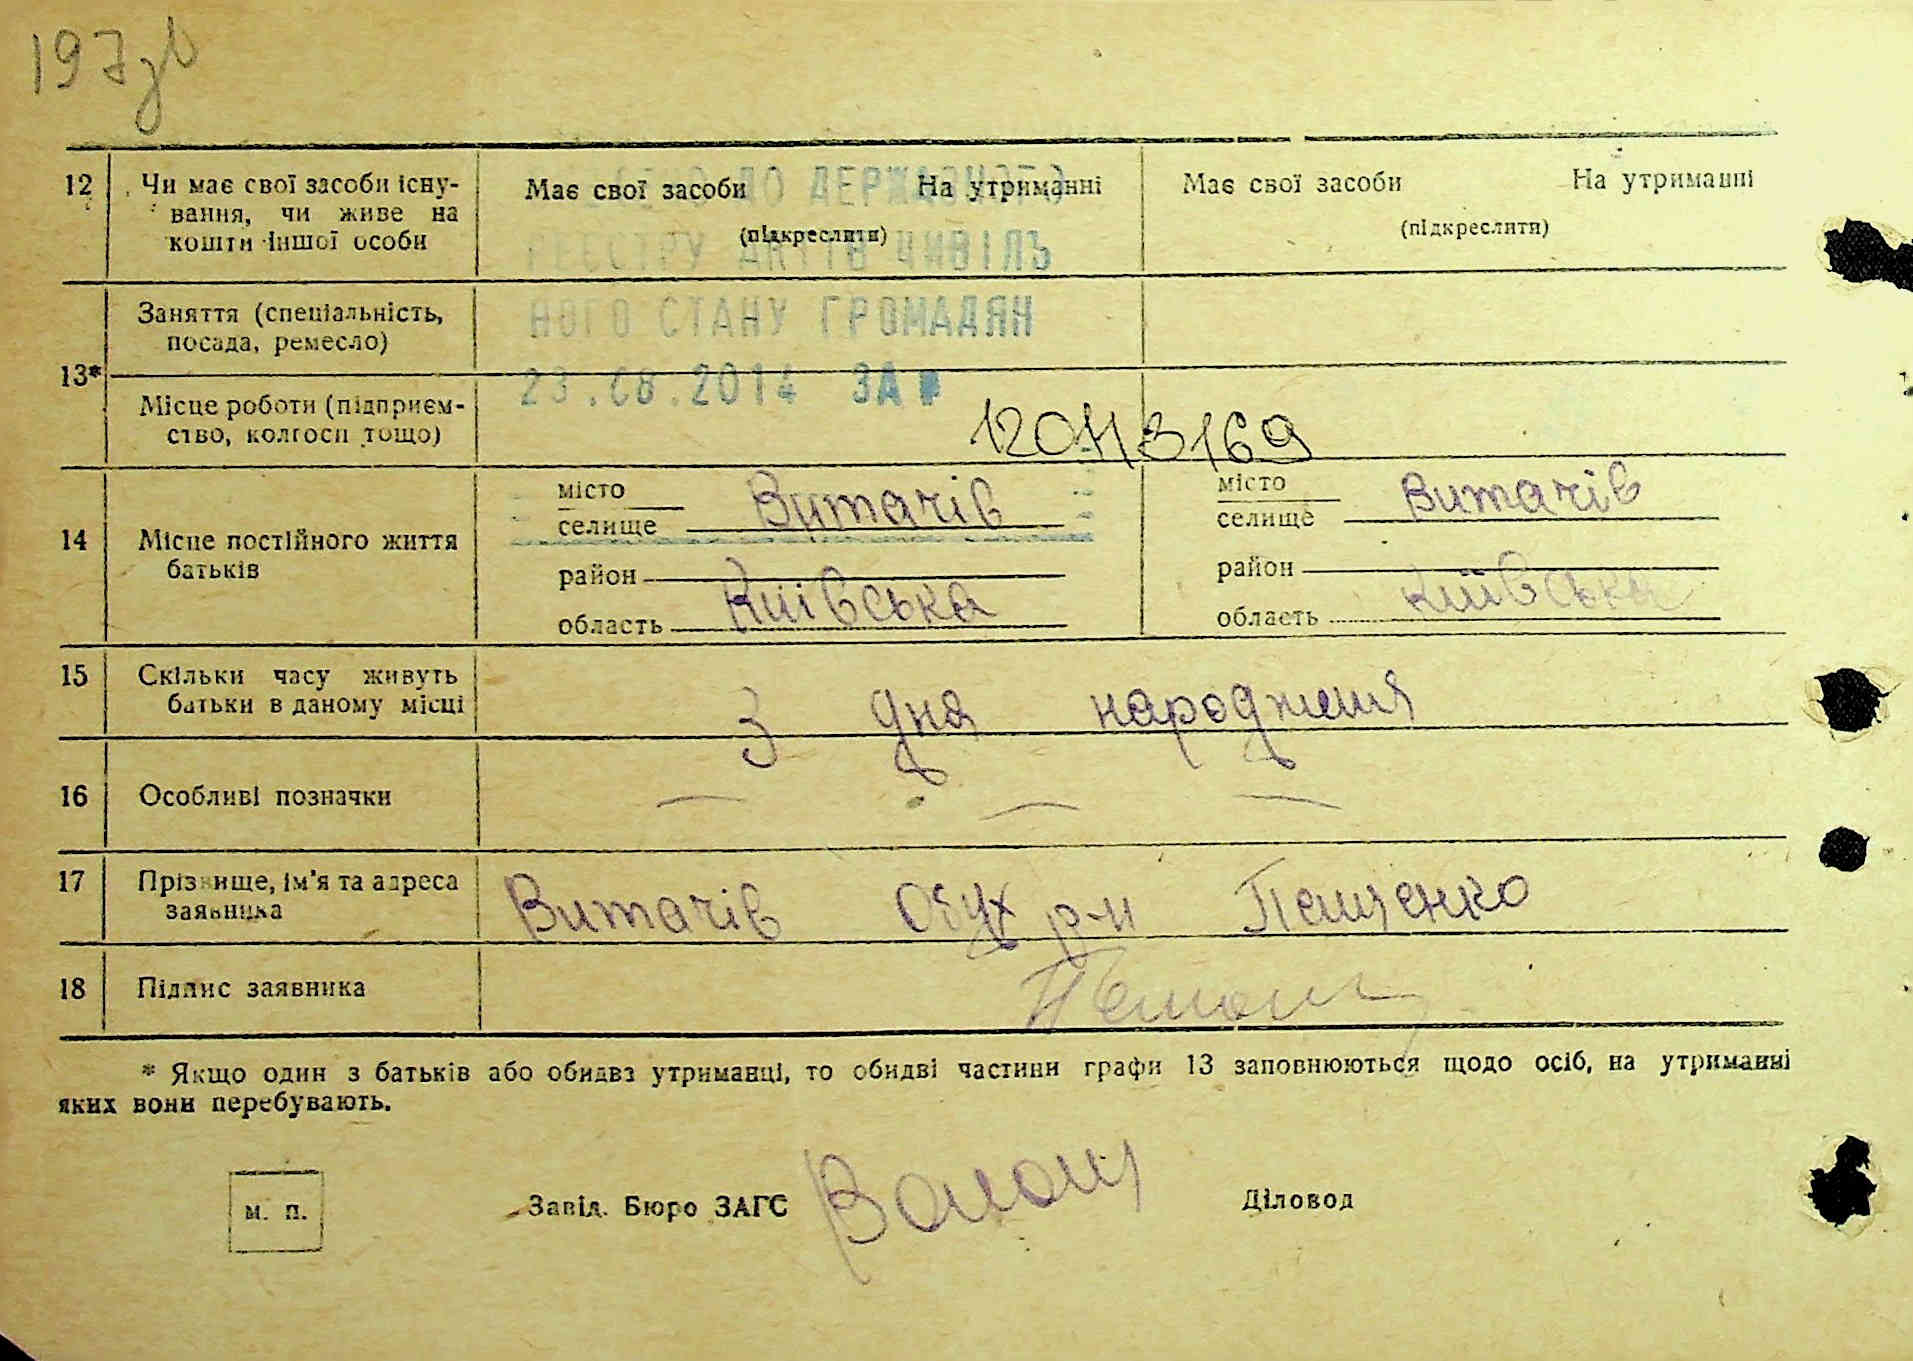 197зв
12 Чи має свої засоби існу-
вання, чи живе на
кошти іншої особи
Має свої засоби На утриманні
(підкреслити)
Має свої засоби На утриманні
(підкреслити)
ДО ДЕРЖАВНОГО
РЕЄСТРУ АКТІВ ЦИВІЛЬ
НОГО СТАНУ ГРОМАДЯН
23.08.2014 ЗА №
13* Заняття (спеціальність,
посада, ремесло)
Місце роботи (підприєм-
ство, колгосп тощо)
169
14 Місце постійного життя
батьків
місто
селище Витачів
район
область Київська
місто
селище Витачів
район
область Київська
15 Скільки часу живуть
батьки в даному місці
З дня народження
16 Особливі позначки — — —
17 Прізвище, ім'я та адреса
заявника
Витачів Обух р-н Пещенко
18 Підпис заявника
* Якщо один з батьків або обидва утриманці, то обидві частини графи 13 заповнюються щодо осіб, на утриманні
яких вони перебувають.
м. п.
Завід. Бюро ЗАГС
Діловод